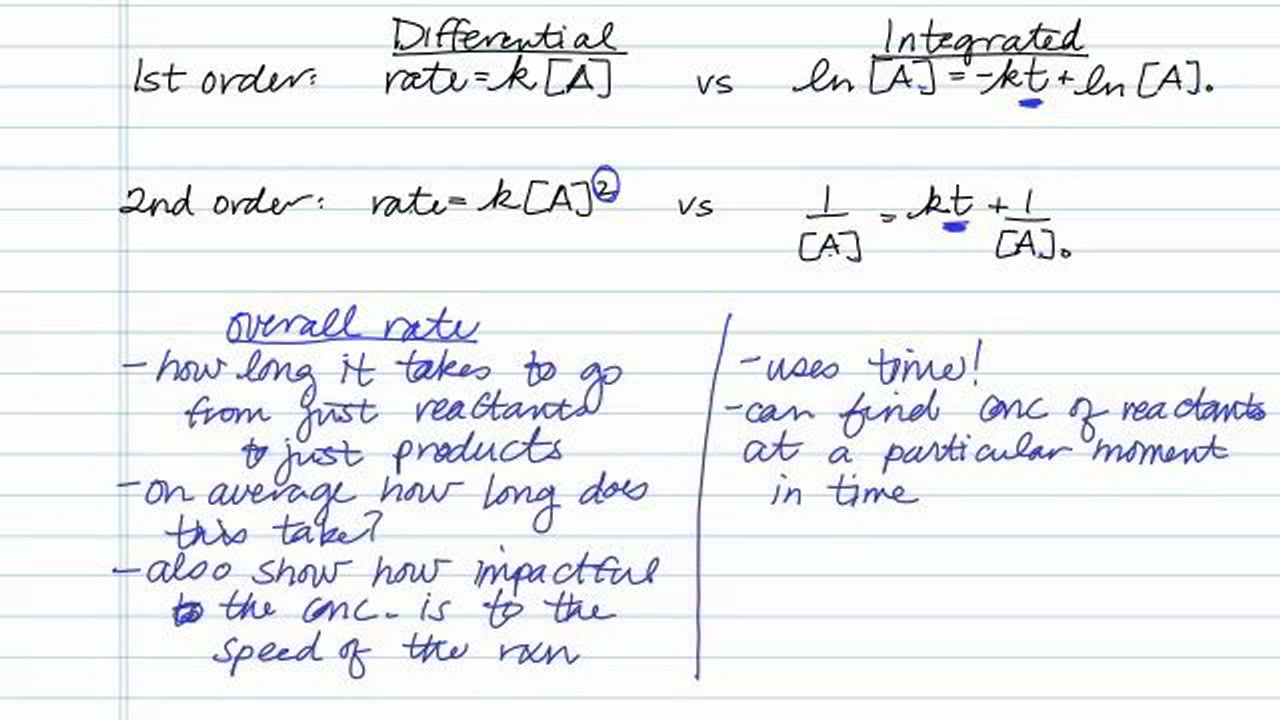 Differential Integrated
1st order: rate = k[A] vs ln [A] = -kt + ln [A]₀
2nd order: rate = k[A]² vs 1/[A] = kt + 1/[A]₀
overall rate
- how long it takes to go
from just reactants
to just products
- on average how long does
this take?
- also show how impactful
the conc. is to the
speed of the rxn
- uses time!
- can find conc of reactants
at a particular moment
in time